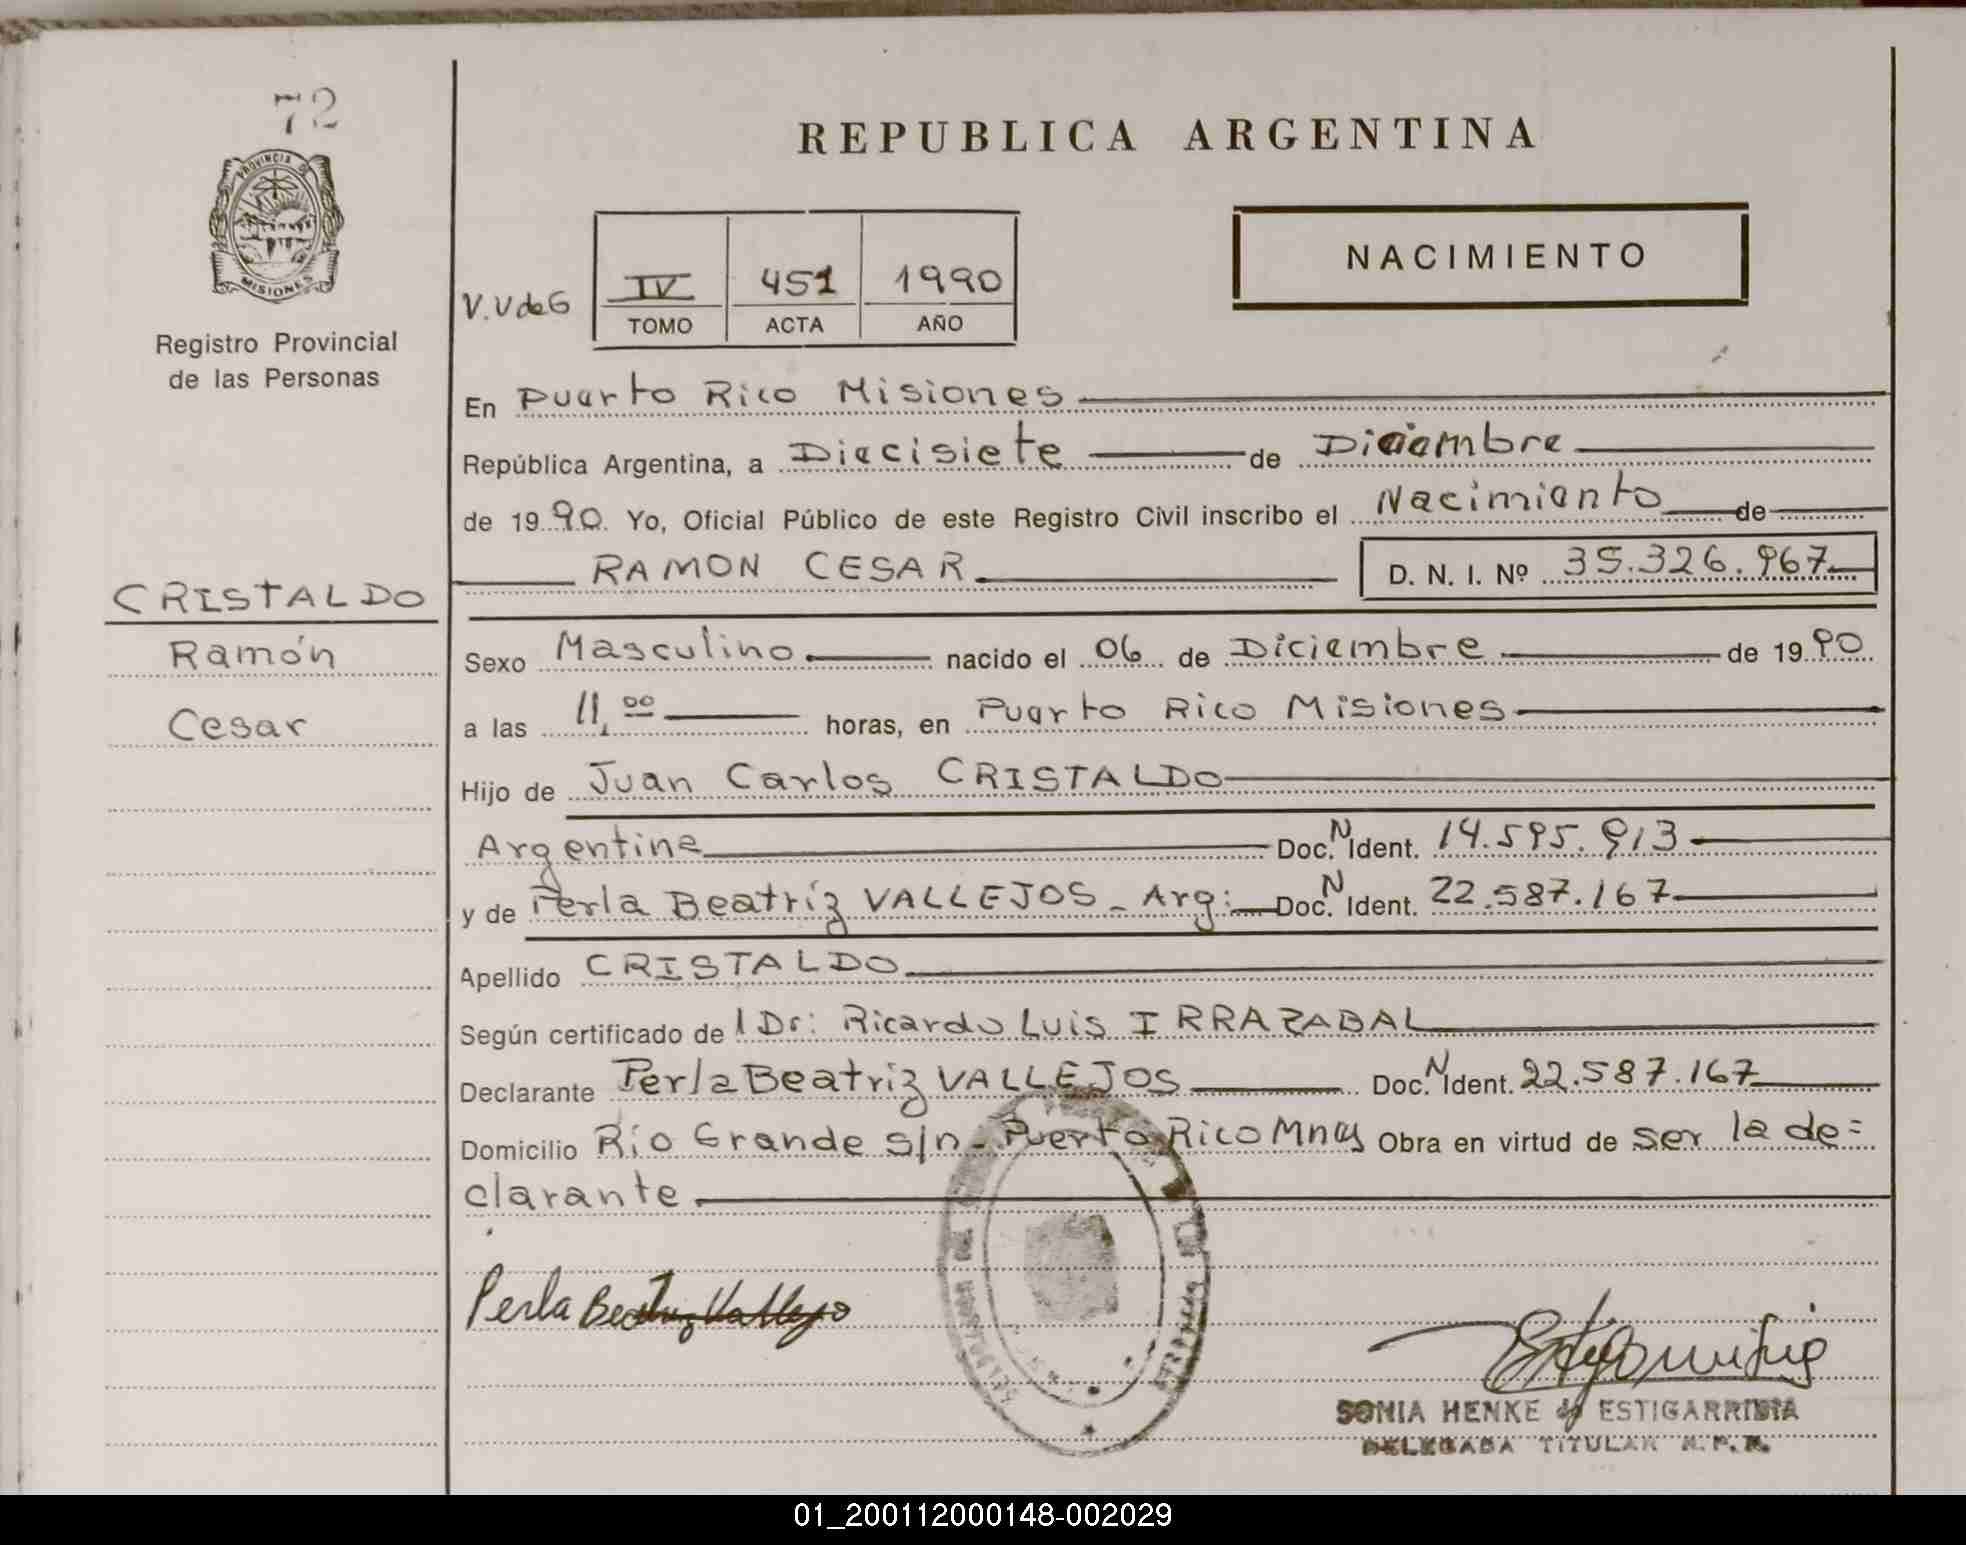 72
PROVINCIA DE
MISIONES
Registro Provincial
de las Personas
CRISTALDO
Ramón
Cesar
REPUBLICA ARGENTINA
NACIMIENTO
V.V de G
IV 451 1990
TOMO ACTA AÑO
En Puerto Rico Misiones
República Argentina, a Diecisiete de Diciembre
de 1990. Yo, Oficial Público de este Registro Civil inscribo el Nacimiento de
RAMON CESAR D. N. I. Nº 35.326.967
Sexo Masculino nacido el 06 de Diciembre de 1990
a las 11,00 horas, en Puerto Rico Misiones
Hijo de Juan Carlos CRISTALDO
Argentina Doc. N Ident. 14.595.913
y de Perla Beatríz VALLEJOS - Arg: Doc. N Ident. 22.587.167
Apellido CRISTALDO
Según certificado de l Dr: Ricardo Luis IRRAZABAL
Declarante Perla Beatriz VALLEJOS Doc. N Ident. 22.587.167
Domicilio Río Grande s/n - Puerto Rico Mnes Obra en virtud de ser la de=
clarante
Perla Beatriz Vallejo
SONIA HENKE de ESTIGARRIBIA
DELEGADA TITULAR R. P. P.
01_200112000148-002029